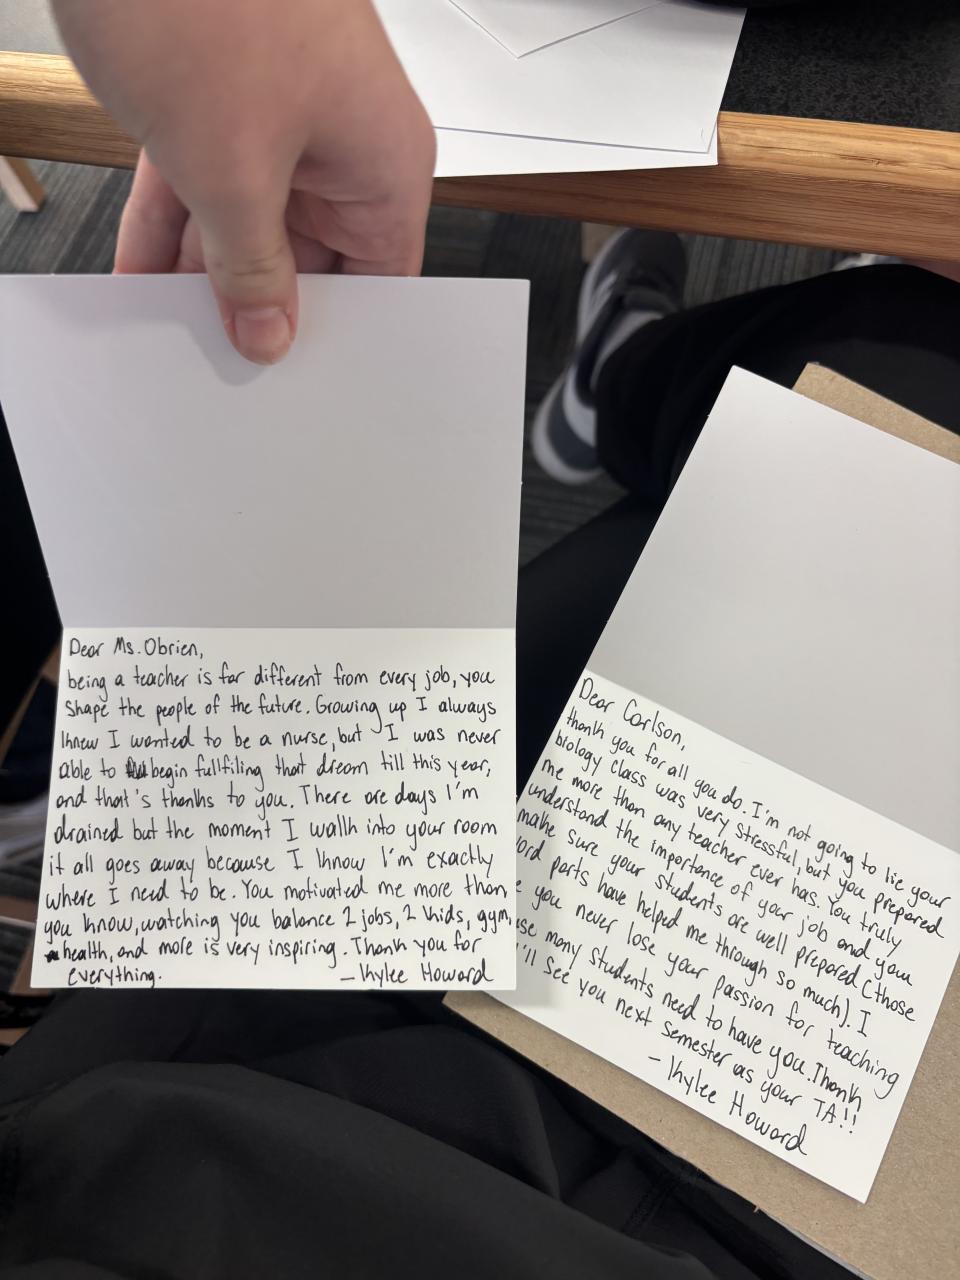 Dear Ms. Obrien,
being a teacher is far different from every job, you
shape the people of the future. Growing up I always
knew I wanted to be a nurse, but I was never
able to begin fullfiling that dream till this year,
and that's thanks to you. There are days I'm
drained but the moment I walk into your room
it all goes away because I know I'm exactly
where I need to be. You motivated me more than
you know, watching you balance 2 jobs, 2 kids, gym,
health, and more is very inspiring. Thank you for
everything.
- Kylee Howard
Dear Carlson,
thank you for all you do. I'm not going to lie your
biology class was very stressful, but you prepared
me more than any teacher ever has. You truly
understand the importance of your job and you
make sure your students are well prepared (those
word parts have helped me through so much). I
you never lose your passion for teaching
many students need to have you. Thank
I'll see you next semester as your TA!!
- Kylee Howard